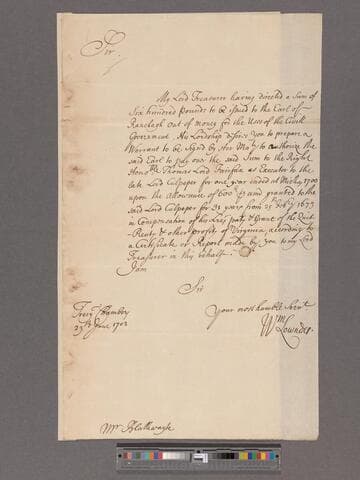 Sir
My Lord Treasurer having directed a Sum of
Six hundred Pounds to be issued to the Earl of
Ranelagh out of money for the Uses of the Civill
Government His Lordship desires you to prepare a
Warrant to be Signed by her Maty to authorize the
said Earl to pay over the said Sum to the Right
Honoble Thomas Lord Fairfax as Executor to the
late Lord Culpeper for one year ended at Michas 1702
upon the Allowance of 600 £ p ann granted to the
said Lord Culpeper for 21 years from
in Compensation of his Lres patts & Grant of the Quit
Rents & other profits of Virginia according to
a Certificate or Report made by you to my Lord
Treasurer in this behalf.
I am
Sir
Your most humble Servt
Wm Lowndes.
Treasy Chambers
June 1703
Mr Blathwayt